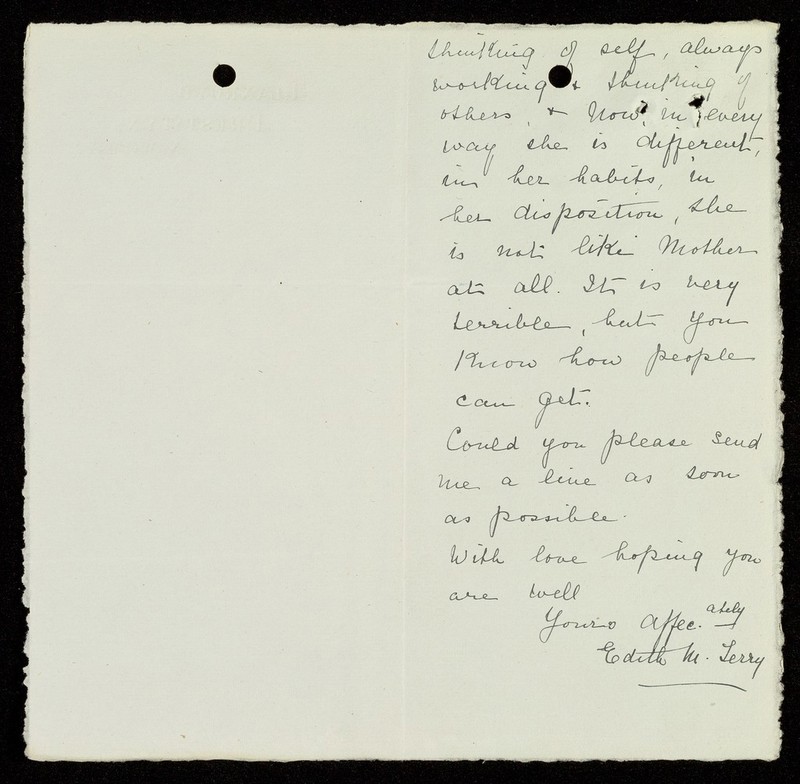 thinking of self, always
working & thinking of
others, & now, in every
way she is different,
in her habits, in
her disposition, she
is not like Mother
at all. It is very
terrible, but you
know how people
can get.
Could you please send
me a line as soon
as possible.
With love hoping you
are well
Yours affec.ately
Edith M. Terry